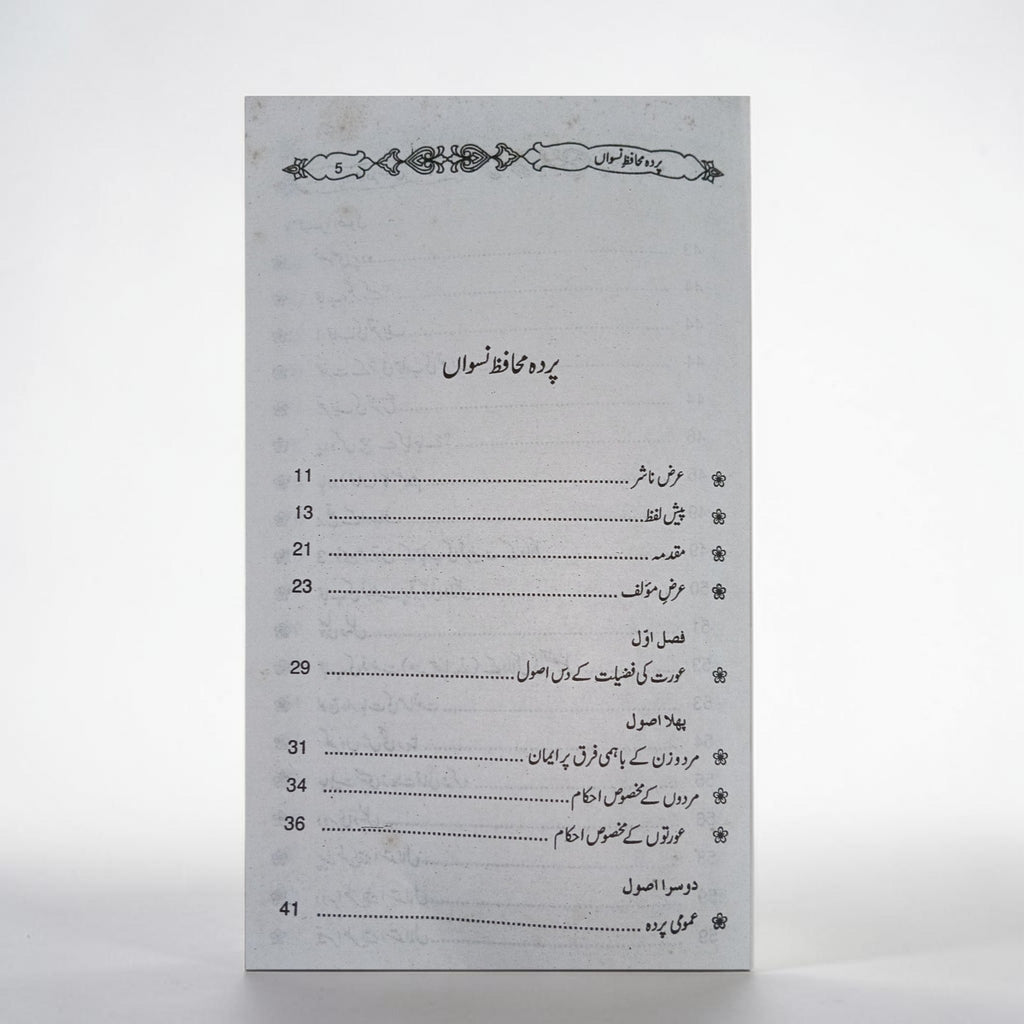 پردہ محافظِ نسواں 5
پردہ محافظ نسواں
عرض ناشر 11
پیش لفظ 13
مقدمہ 21
عرضِ مؤلف 23
فصل اوّل
عورت کی فضیلت کے دس اصول 29
پہلا اصول
مرد و زن کے باہمی فرق پر ایمان 31
مردوں کے مخصوص احکام 34
عورتوں کے مخصوص احکام 36
دوسرا اصول
عمومی پردہ 41